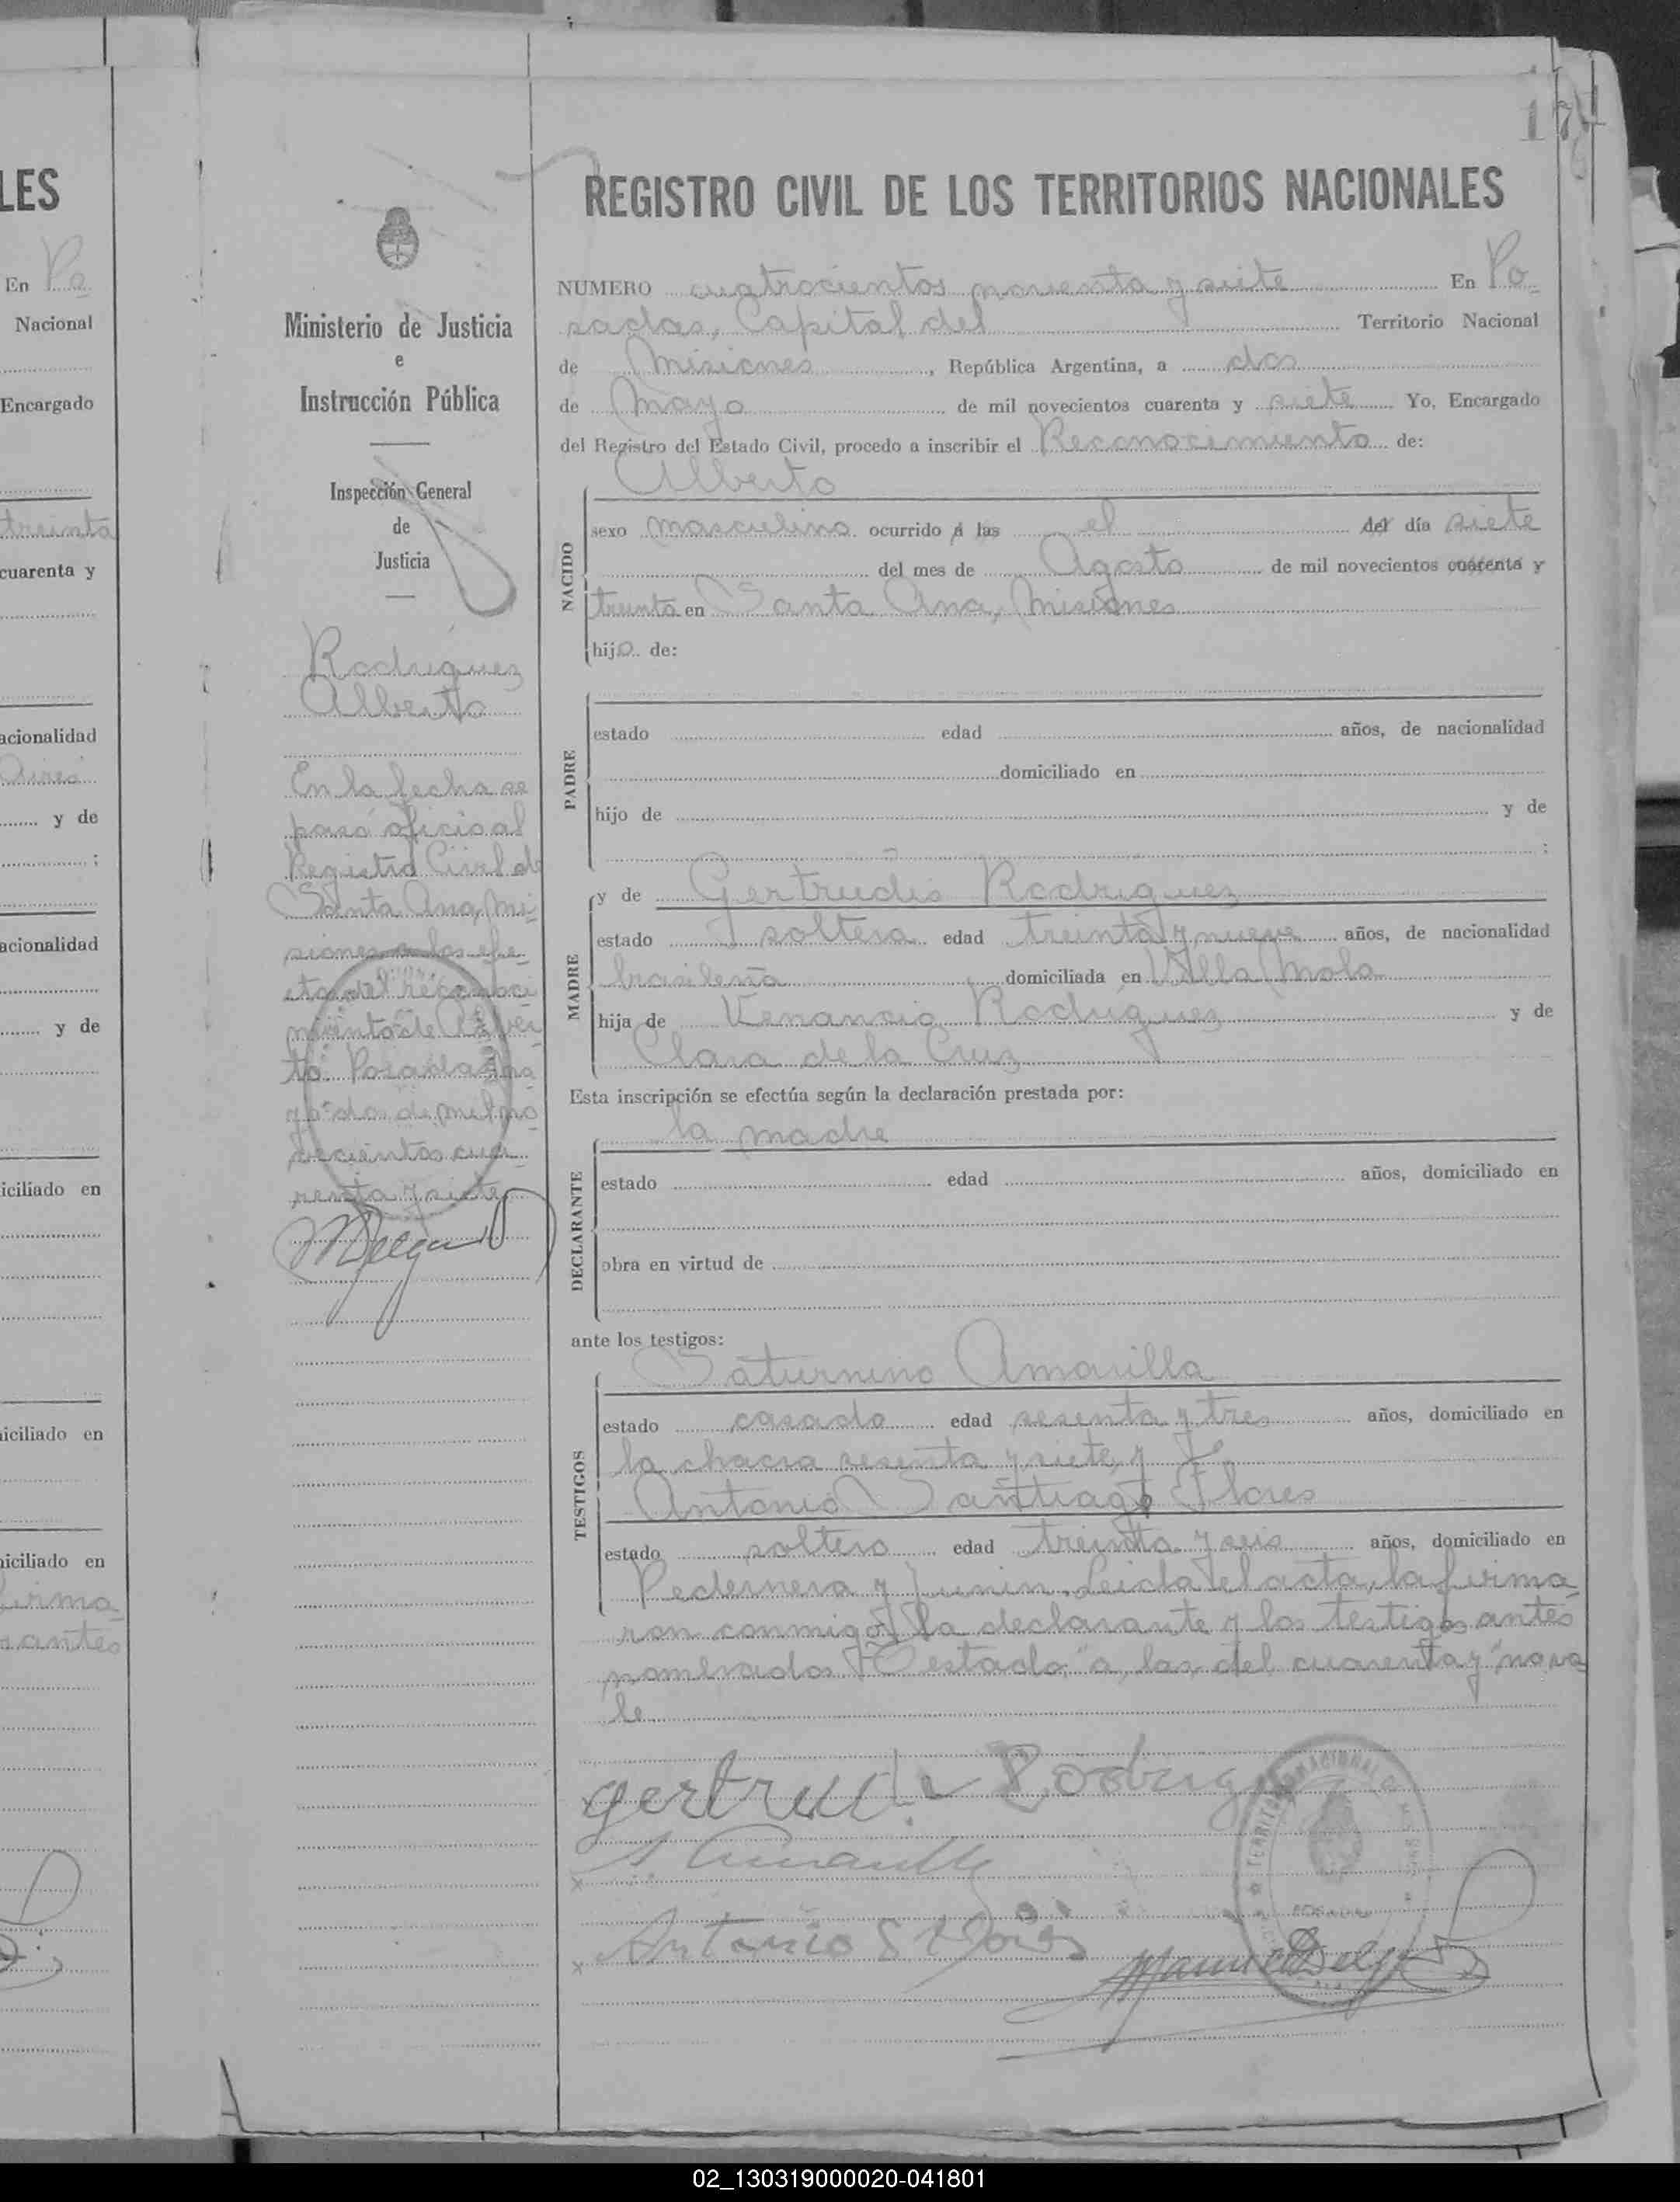 LES
En Po
Nacional
Encargado
treinta
cuarenta y
acionalidad
Aires
y de
;
acionalidad
y de
iciliado en
iciliado en
iciliado en
firma
antes
174
Ministerio de Justicia
e
Instrucción Pública
Inspección General
de
Justicia
Rodriguez
Alberto
En la fecha se
pasó oficio al
Registro Civil de
Santa Ana, Mi-
siones a los efe-
ctos del reconoci
miento de Alber-
to. Posadas, ma
yo dos de mil no
vecientos cua-
renta y siete
MDelgado
REGISTRO CIVIL DE LOS TERRITORIOS NACIONALES
NUMERO cuatrocientos noventa y siete En Po
sadas, Capital del Territorio Nacional
de Misiones, República Argentina, a dos
de Mayo de mil novecientos cuarenta y siete Yo, Encargado
del Registro del Estado Civil, procedo a inscribir el Reconocimiento de:
Alberto
NACIDO
sexo masculino ocurrido a las el del día siete
del mes de Agosto de mil novecientos cuarenta y
treinta en Santa Ana, Misiones
hijo de:
PADRE
estado edad años, de nacionalidad
domiciliado en
hijo de y de
;
MADRE
y de Gertrudis Rodriguez
estado soltera edad treinta y nueve años, de nacionalidad
brasileña domiciliada en Villa Mola
hija de Venancio Rodriguez y de
Clara de la Cruz
Esta inscripción se efectúa según la declaración prestada por:
la madre
DECLARANTE
estado edad años, domiciliado en
obra en virtud de
ante los testigos:
TESTIGOS
Saturnino Amarilla
estado casado edad sesenta y tres años, domiciliado en
la chacra sesenta y siete, y
Antonio Santiago Flores
estado soltero edad treinta y seis años, domiciliado en
Pedernera y Junin. Leida el acta, la firma-
ron conmigo la declarante y los testigos antes
nombrados. Testado "a, las, del cuarenta y" no va
le
Gertrudis Rodrigez
S. Amarilla
Antonio S Flores
Manuel Delgado
02_130319000020-041801